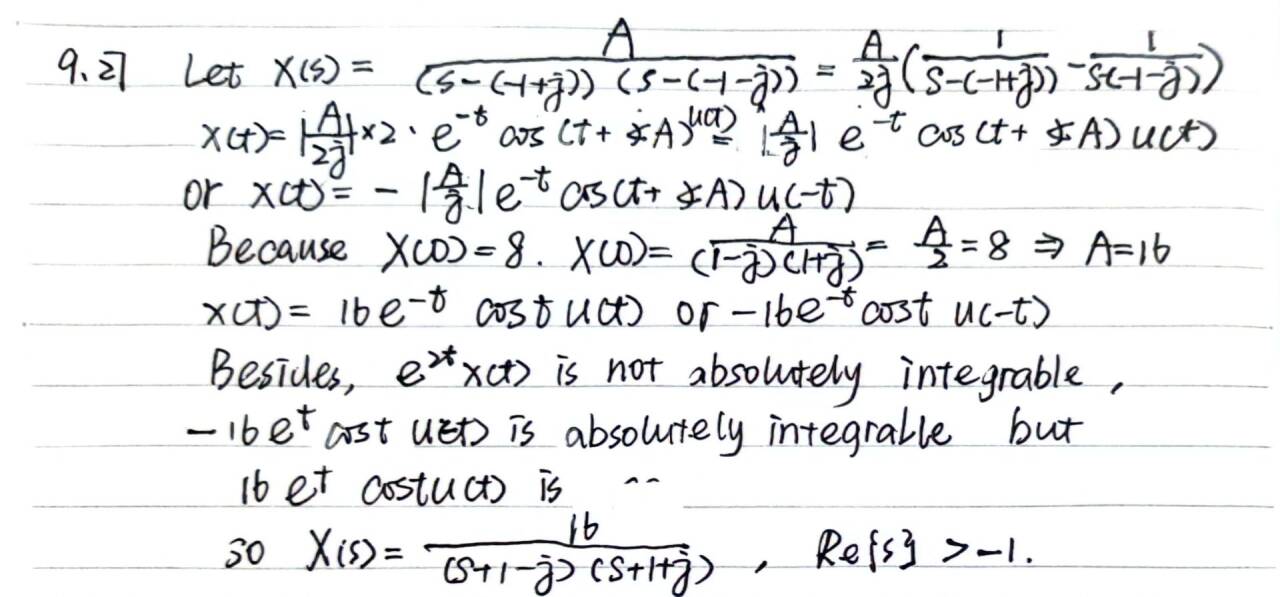 9.27 Let X(s) = A / ((s-(-1+j)) (s-(-1-j))) = A/2j (1/(s-(-1+j)) - 1/(s(-1-j)))
x(t) = |A/2j| × 2 · e^-t cos(t + ∡A) u(t) = |A/j| e^-t cos(t + ∡A) u(t)
or x(t) = - |A/j| e^-t cos(t + ∡A) u(-t)
Because X(0) = 8. X(0) = A / ((1-j)(1+j)) = A/2 = 8 ⇒ A = 16
x(t) = 16e^-t cost u(t) or -16e^-t cost u(-t)
Besides, e^2t x(t) is not absolutely integrable,
-16e^t cost u(-t) is absolutely integrable but
16 e^t cost u(t) is ··
so X(s) = 16 / ((s+1-j) (s+1+j)), Re{s} > -1.